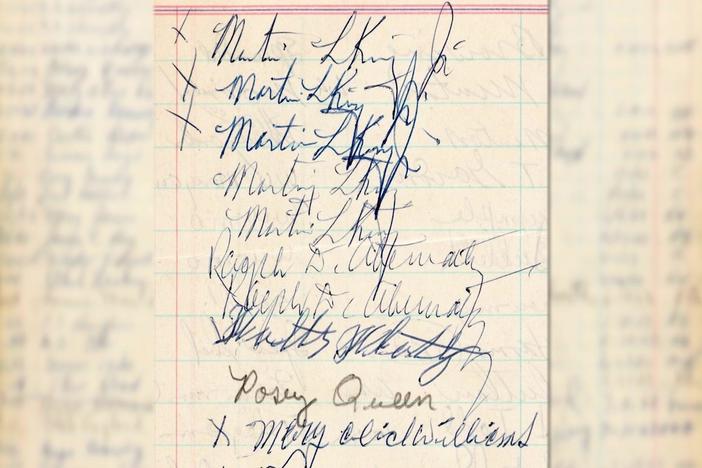 x Martin L King Jr
x Martin L King Jr.
x Martin L King Jr
Martin L King
Martin L King
Ralph D. Abernathy
Ralph D. Abernathy
Posey Queen
x Mary Alice Williams